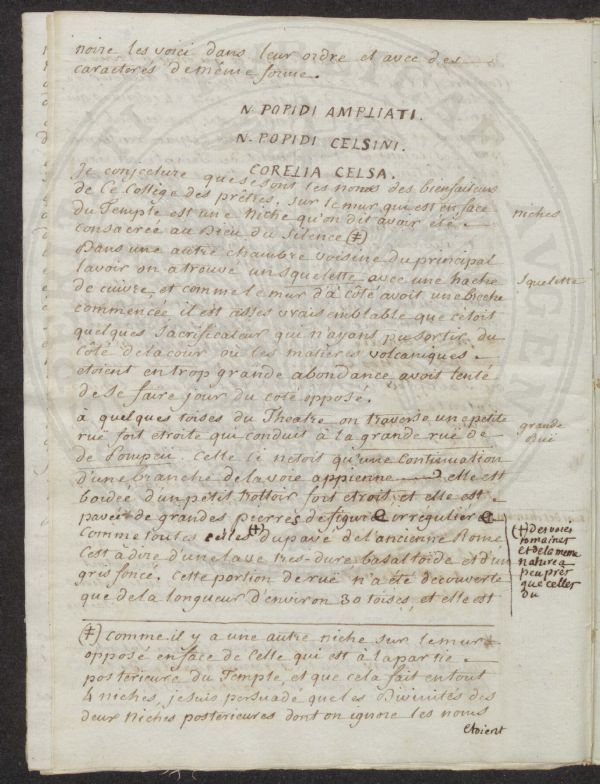 noire les voici dans leur ordre et avec des
caracteres de même forme.
N. POPIDI AMPLIATI.
N. POPIDI CELSINI.
CORELIA CELSA.
Je conjecture que ce sont les noms des bienfaiteurs
de Ce Collège des prêtres, sur le mur qui est en face
du Temple est une Niche qu'on dit avoir été
consacreé au Dieu du Silence (‡)
niches
Dans une autre chambre voisine du principal
lavoir on a trouvé un squelette avec une hache
squelette
de cuivre, et comme le mur d'à côté avoit une breche
commencée il est assés vraisemblable que c'étoit
quelques sacrificateur qui n'ayant pu sortir du
côté de la cour ou les matieres volcaniques
etoient en trop grande abondance avoit tenté
de se faire jour du coté opposé.
à quelques toises du Theatre on traverse une petite
rue fort etroite qui conduit à la grande rue de
grande
Rue
de Pompeii. Celle ci n'etoit qu'une Continuation
d'une branche de la voie appienne elle est
bordée d'un petit trottoir fort etroit, et elle est
pavée de grandes pierres de figure irrégulière
Comme toutes celles (†) du pavé de l'ancienne Rome
C'est à dire d'une lave tres-dure basaltoide et d'un
gris foncé. Cette portion de rue n'a été decouverte
que de la longueur d'environ 30 toises, et elle est
(†) des voies
romaines
et de la meme
nature a
peu près
que celles
du
(‡) Comme il y a une autre niche sur le mur
opposé en face de Celle qui est à la partie
posterieure du Temple, et que cela fait en tout
4 niches, je suis persuadé que les Divinités des
deux Niches postérieures dont on ignore les noms
etoient